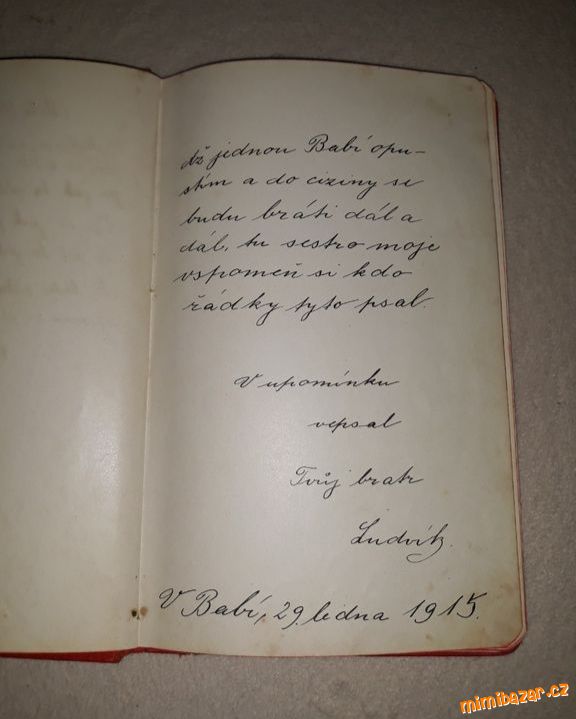 Až jednou Babí opu-
stím a do ciziny se
budu bráti dál a
dál, tu sestro moje
vspomeň si kdo
řádky tyto psal.
V upomínku
vepsal
Tvůj bratr
Ludvík.
V Babí, 29. ledna 1915.
mimibazar.cz